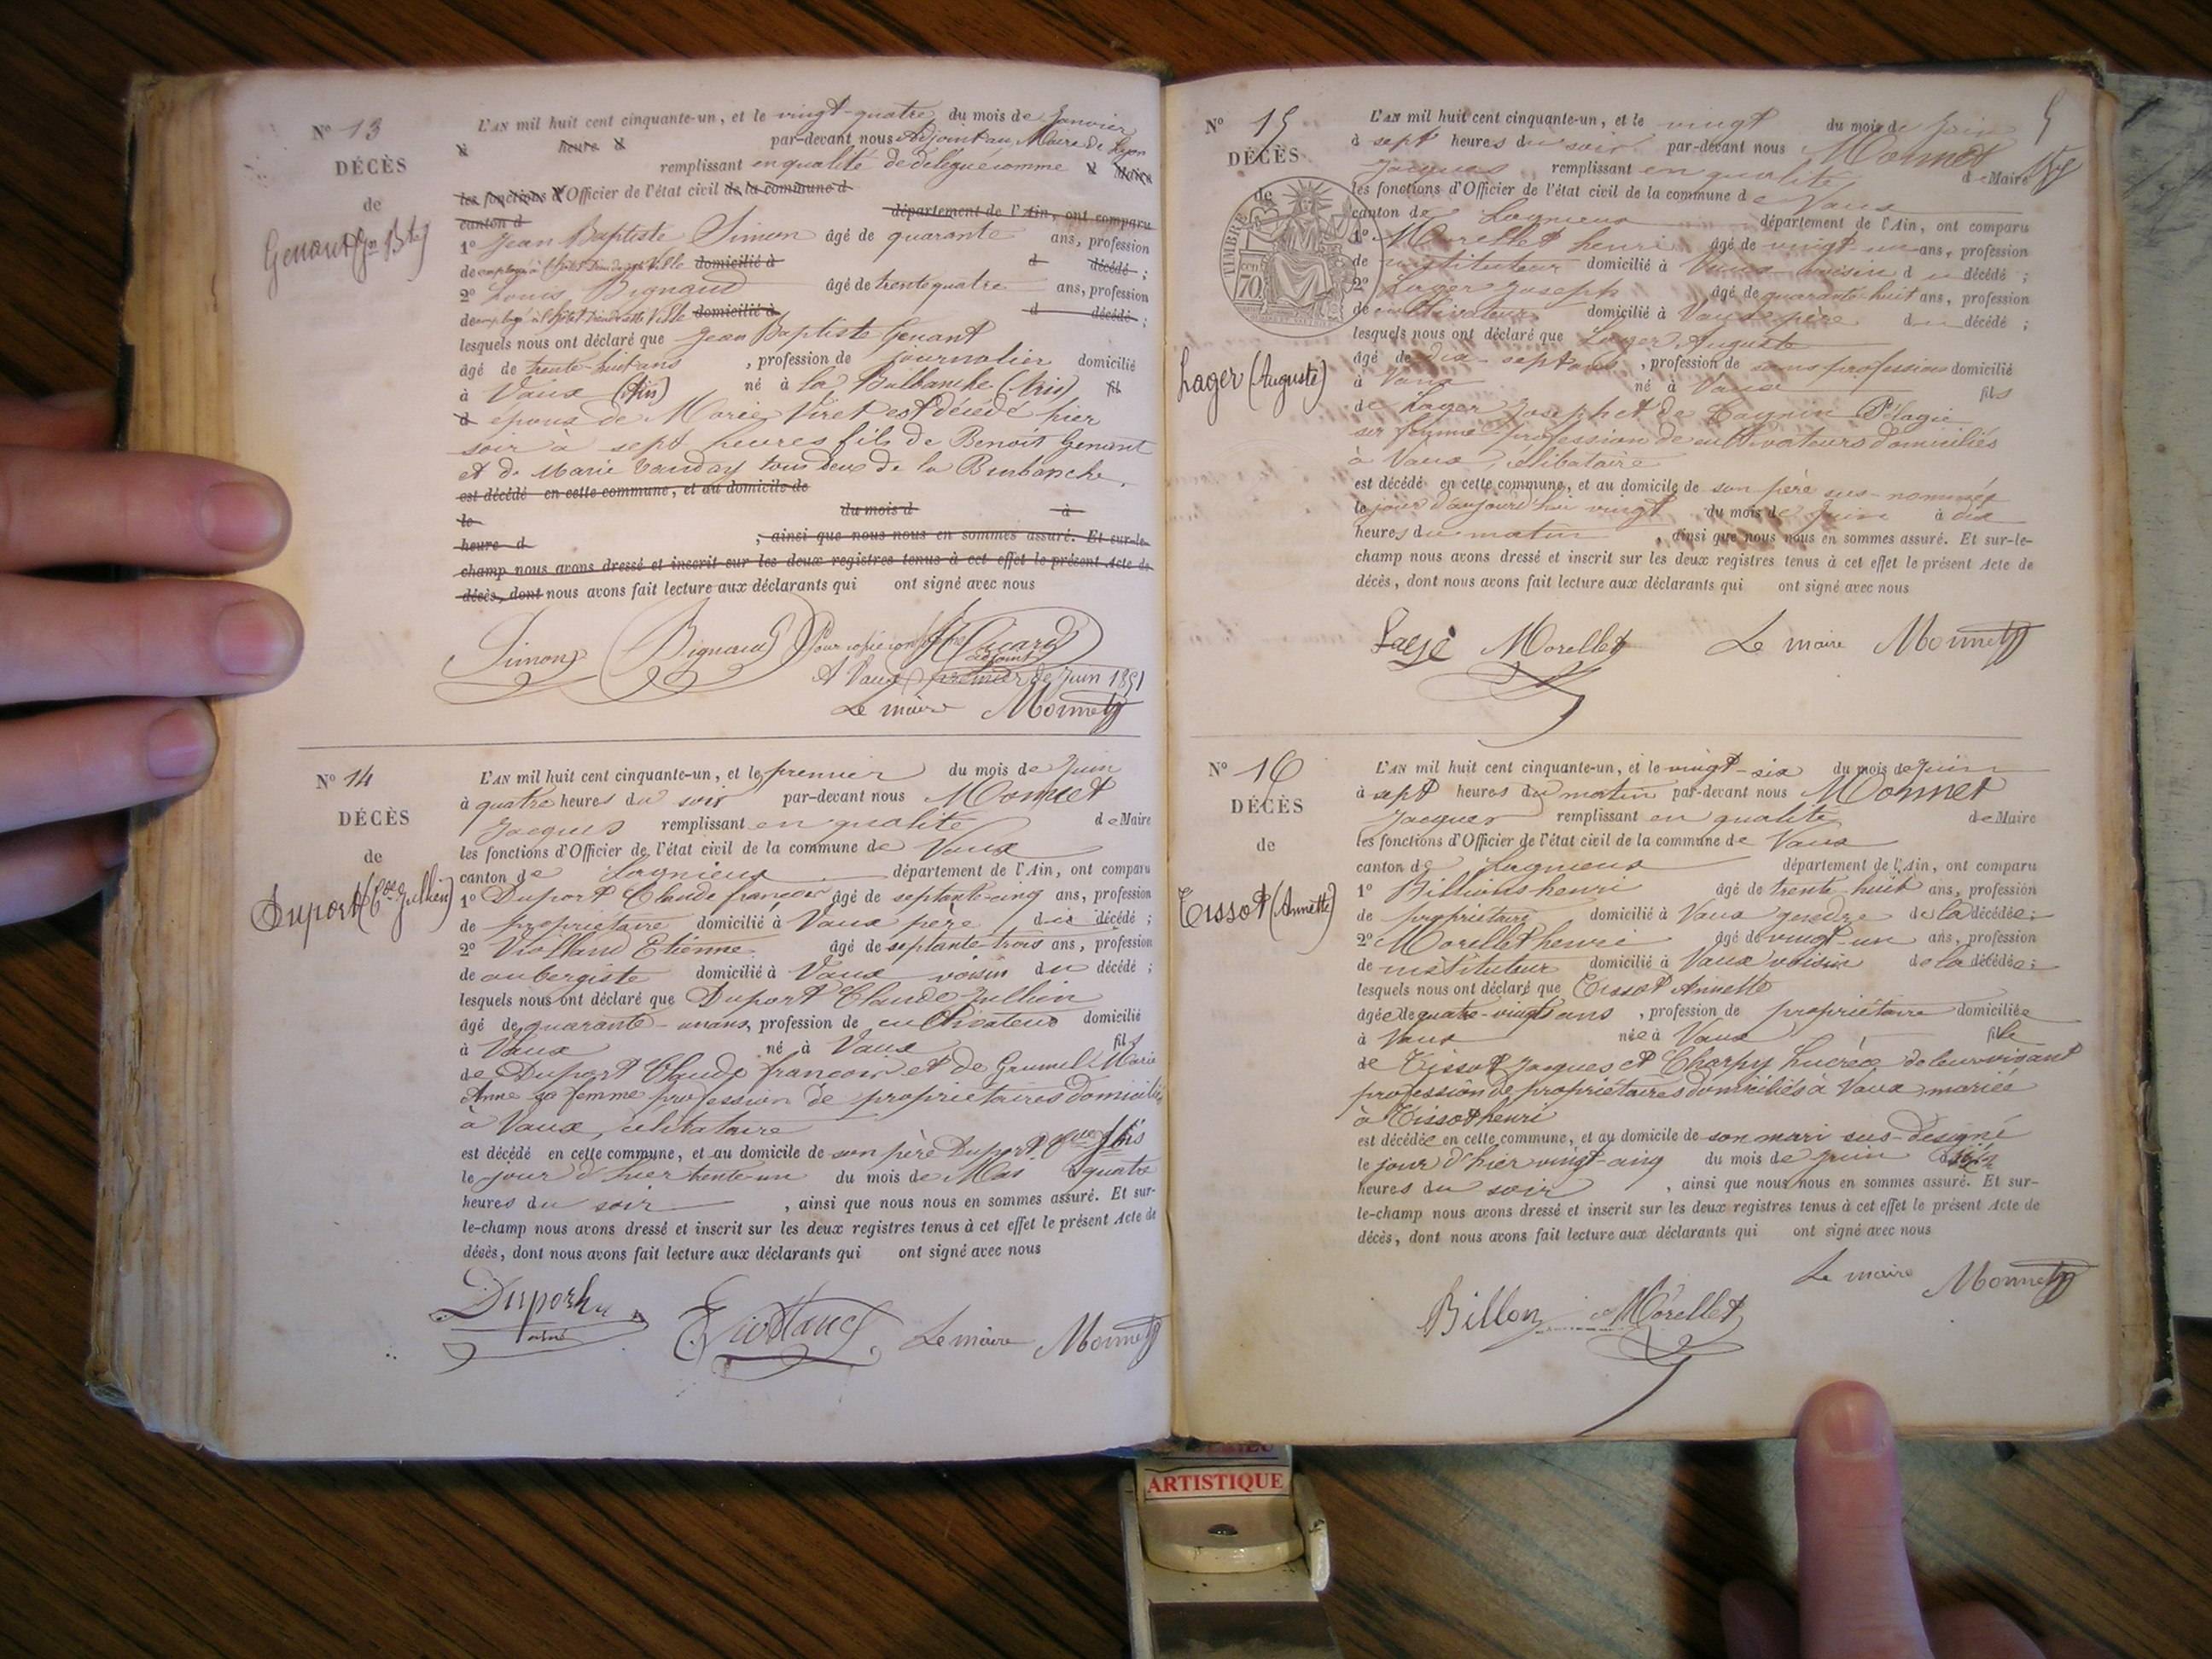 N° 13
DÉCÈS
de
Genant (Jn Bte)
L'AN mil huit cent cinquante-un, et le vingt-quatre du mois de Janvier
heure par-devant nous Adjoint au Maire de Lyon
remplissant en qualité de délégué comme Maire
les fonctions d'Officier de l'état civil de la commune d
canton d département de l'Ain, ont comparu
1° Jean Baptiste Simon âgé de quarante ans, profession
de employé à l'hôtel Dieu de cette Ville domicilié à d décédé ;
2° Louis Bignaud âgé de trente quatre ans, profession
de employé à l'hôtel Dieu de cette Ville domicilié à d décédé ;
lesquels nous ont déclaré que Jean Baptiste Genant
âgé de trente-huit ans , profession de journalier domicilié
à Vaux (Ain) né à la Bulbanche (Ain) fil
d époux de Marie Viret est décédé hier
soir à sept heures fils de Benoît Genant
et de Marie Vanday tous deux de la Burbanche.
est décédé en cette commune, et au domicile de
le du mois d à
heure d , ainsi que nous nous en sommes assuré. Et sur-le-
champ nous avons dressé et inscrit sur les deux registres tenus à cet effet le présent Acte de
décès, dont nous avons fait lecture aux déclarants qui ont signé avec nous
Simon Bignaud Pour copie conforme
adjoint
A Vaux premier de Juin 1851
Le maire Monnet
N° 14
DÉCÈS
de
Duport (Cde Jullien)
L'AN mil huit cent cinquante-un, et le premier du mois de Juin
à quatre heures du soir par-devant nous Monnet
Jacques remplissant en qualité de Maire
les fonctions d'Officier de l'état civil de la commune de Vaux
canton de Lagnieux département de l'Ain, ont comparu
1° Duport Claude françois âgé de septante-cinq ans, profession
de propriétaire domicilié à Vaux père du décédé ;
2° Violland Etienne âgé de septante-trois ans, profession
de aubergiste domicilié à Vaux voisin du décédé ;
lesquels nous ont déclaré que Duport Claude Jullien
âgé de quarante-un ans, profession de cultivateur domicilié
à Vaux né à Vaux fils
de Duport Claude françois et de Grumel Marie
Anne sa femme profession de propriétaires domiciliés
à Vaux, célibataire
est décédé en cette commune, et au domicile de son père Duport
le jour d'hier trente-un du mois de Mai à quatre
heures du soir , ainsi que nous nous en sommes assuré. Et sur-
le-champ nous avons dressé et inscrit sur les deux registres tenus à cet effet le présent Acte de
désès, dont nous avons fait lecture aux déclarants qui ont signé avec nous
Duport
Violland Le maire Monnet
5
N° 15
DÉCÈS
de
TIMBRE
70
Lager (Auguste)
L'AN mil huit cent cinquante-un, et le vingt du mois de Juin
à sept heures du soir par-devant nous Monnet
Jacques remplissant en qualité de Maire
les fonctions d'Officier de l'état civil de la commune de Vaux
canton de Lagnieux département de l'Ain, ont comparu
1° Morellet henri âgé de vingt-un ans, profession
de instituteur domicilié à Vaux voisin du décédé ;
2° Lager Joseph âgé de quarante-huit ans, profession
de cultivateur domicilié à Vaux père du décédé ;
lesquels nous ont déclaré que Lager Auguste
âgé de dix-sept ans , profession de sans profession domicilié
à Vaux né à Vaux fils
de Lager Joseph et de Pélagie
sa femme profession de cultivateurs domiciliés
à Vaux, célibataire
est décédé en cette commune, et au domicile de son père sus-nommé
le jour d'aujourd'hui vingt du mois de Juin à dix
heures du matin , ainsi que nous nous en sommes assuré. Et sur-le-
champ nous avons dressé et inscrit sur les deux registres tenus à cet effet le présent Acte de
décès, dont nous avons fait lecture aux déclarants qui ont signé avec nous
Morellet Le maire Monnet
N° 16
DÉCÈS
de
Tissot (Annette)
L'AN mil huit cent cinquante-un, et le vingt-six du mois de Juin
à sept heures du matin par-devant nous Monnet
Jacques remplissant en qualité de Maire
les fonctions d'Officier de l'état civil de la commune de Vaux
canton de Lagnieux département de l'Ain, ont comparu
1° henri âgé de trente-huit ans, profession
de propriétaire domicilié à Vaux gendre de la décédée ;
2° Morellet henri âgé de vingt-un ans, profession
de instituteur domicilié à Vaux voisin de la décédée ;
lesquels nous ont déclaré que Tissot Annette
âgée de quatre-vingts ans , profession de propriétaire domiciliée
à Vaux née à Vaux fille
de Tissot Jacques et Charpy Lucrèce de leur vivant
profession de propriétaires domiciliés à Vaux, mariée
à Tissot henri
est décédée en cette commune, et au domicile de son mari sus-designé
le jour d'hier vingt-cinq du mois de Juin à
heures du soir , ainsi que nous nous en sommes assuré. Et sur-
le-champ nous avons dressé et inscrit sur les deux registres tenus à cet effet le présent Acte de
décès, dont nous avons fait lecture aux déclarants qui ont signé avec nous
Le maire Monnet
Billon Morellet
ARTISTIQUE